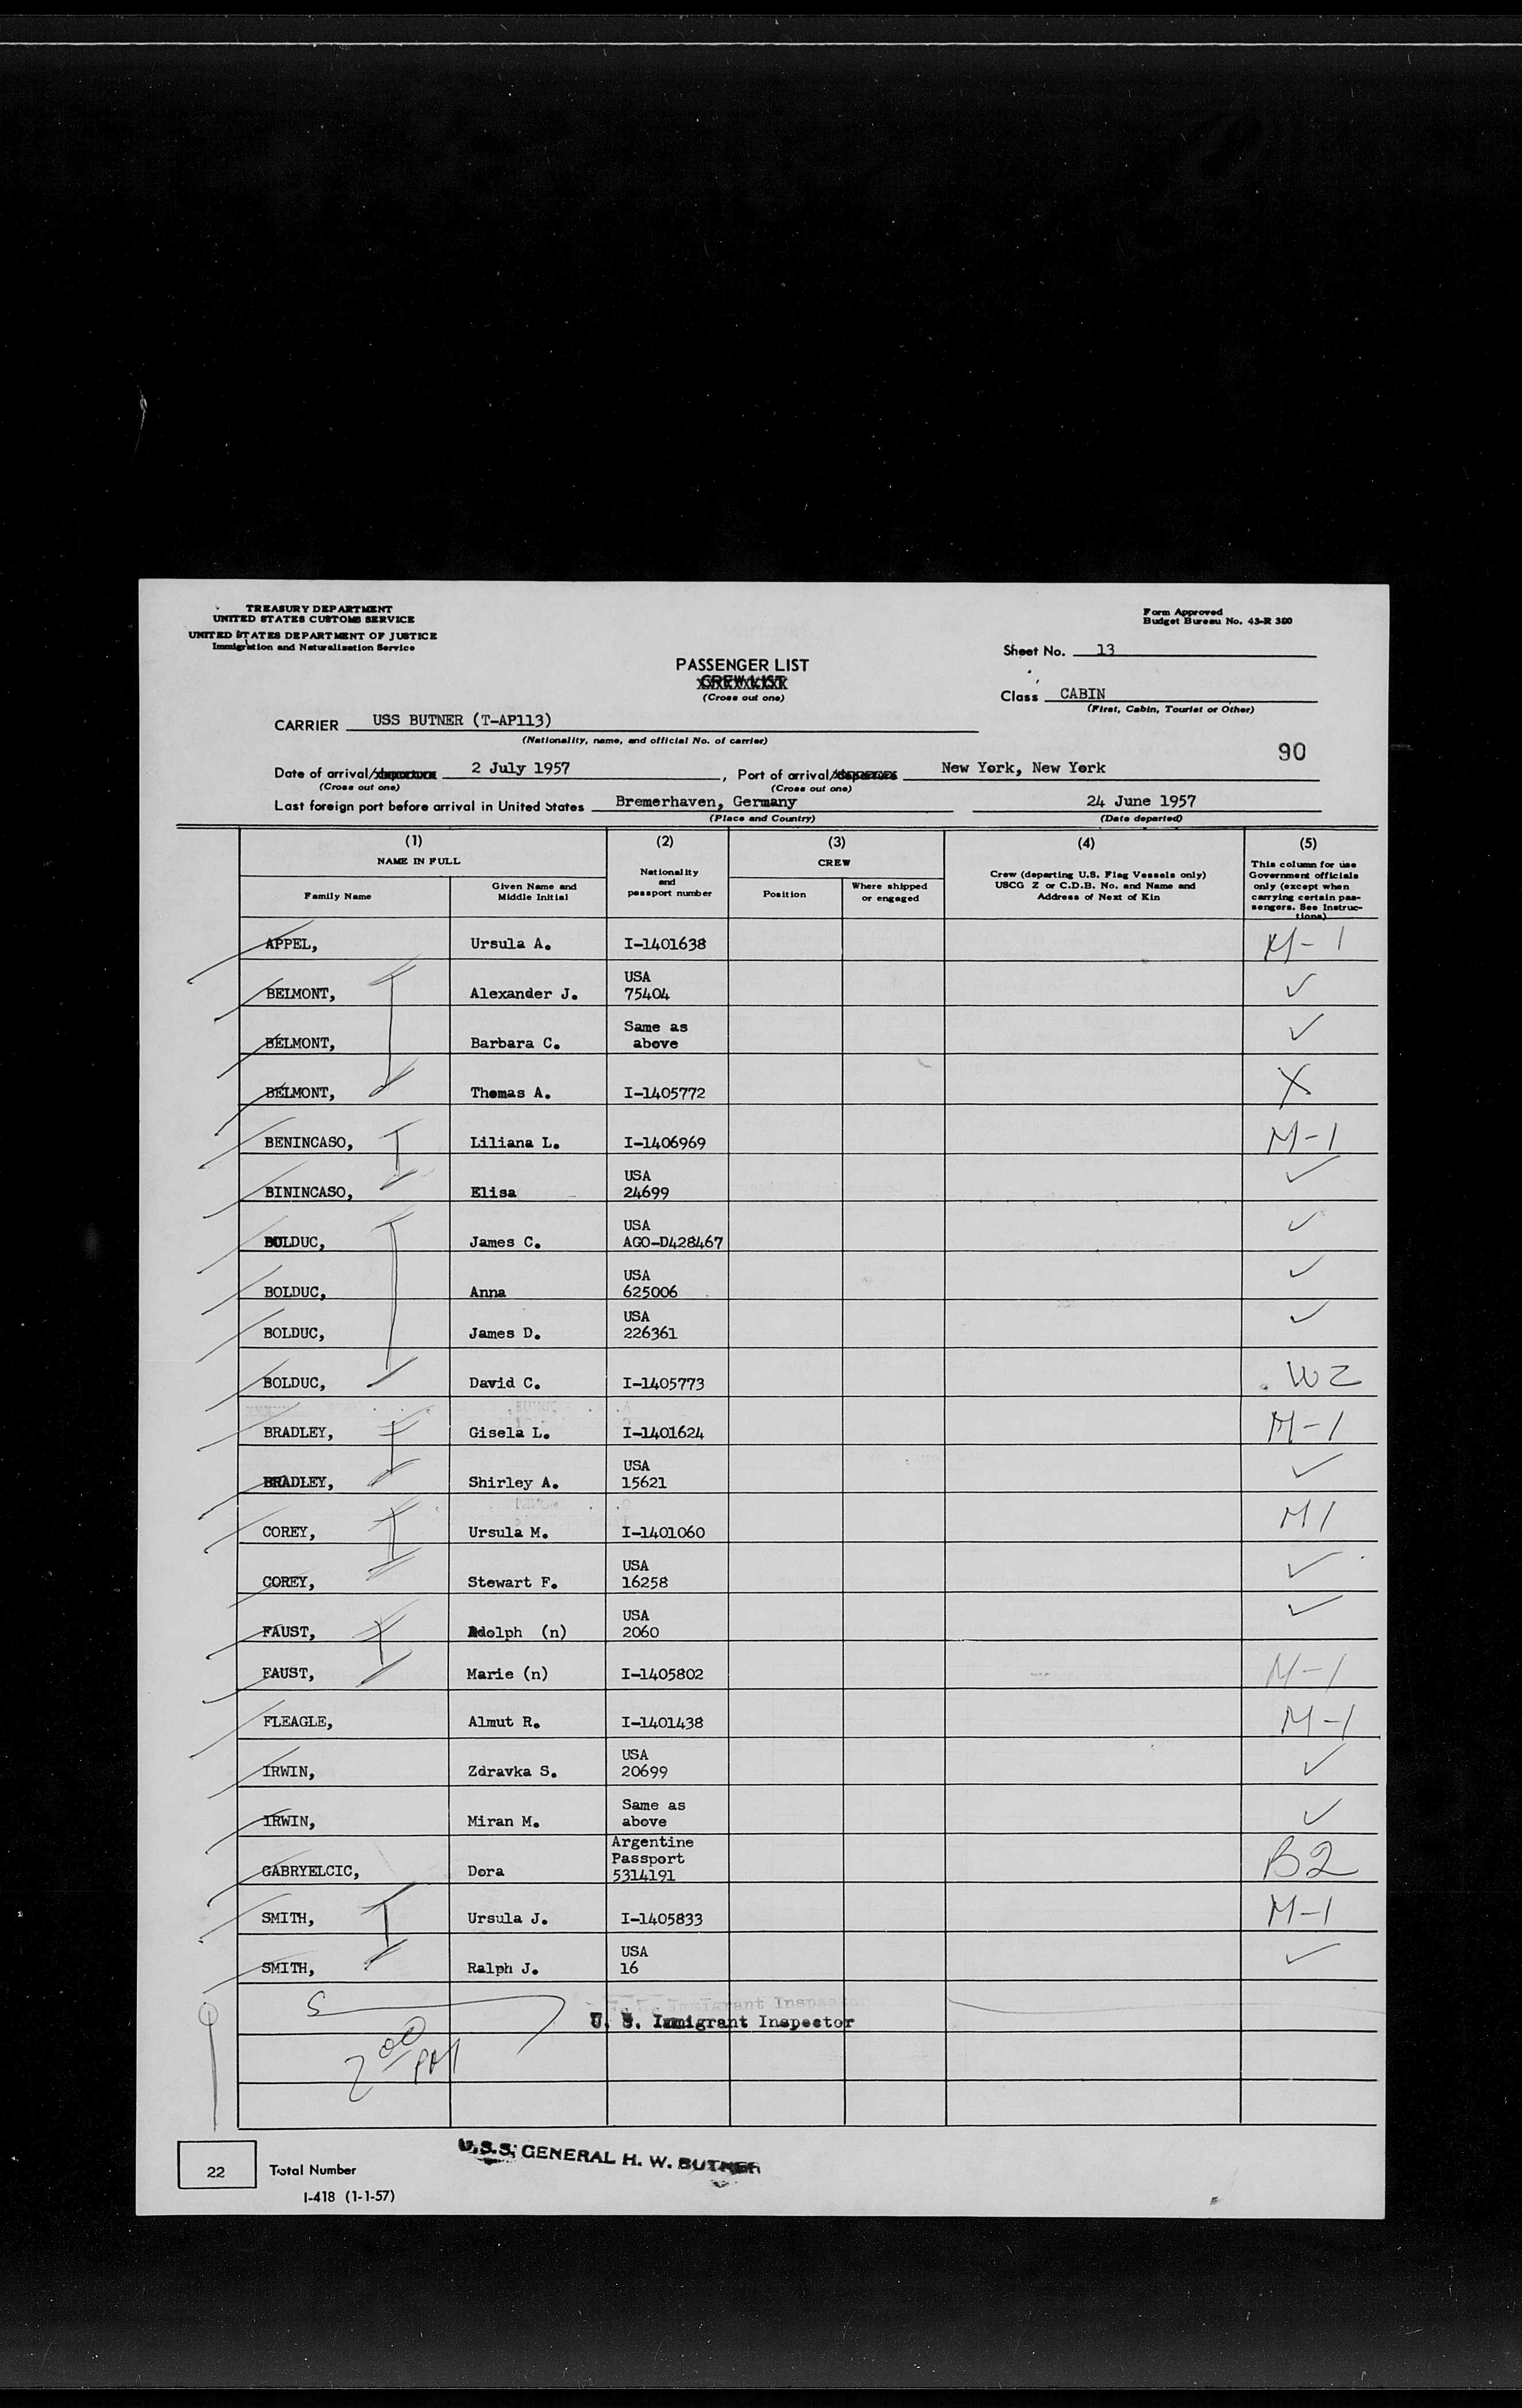 TREASURY DEPARTMENT
UNITED STATES CUSTOMS SERVICE
UNITED STATES DEPARTMENT OF JUSTICE
Immigration and Naturalization Service
Form Approved
Budget Bureau No. 43-R 380
Sheet No. 13
PASSENGER LIST
CREW LIST
(Cross out one)
Class CABIN
(First, Cabin, Tourist or Other)
CARRIER USS BUTNER (T-AP113)
(Nationality, name, and official No. of carrier)
90
Date of arrival/departure 2 July 1957, Port of arrival/departure New York, New York
(Cross out one) (Cross out one)
Last foreign port before arrival in United States Bremerhaven, Germany 24 June 1957
(Place and Country) (Date departed)
(1) (2) (3) (4) (5)
NAME IN FULL
Family Name
Given Name and Middle Initial
Nationality and passport number
CREW
Position
Where shipped or engaged
Crew (departing U.S. Flag Vessels only) USCG Z or C.D.B. No. and Name and Address of Next of Kin
This column for use Government officials only (except when carrying certain passengers. See Instructions)
APPEL, Ursula A. I-1401638 M-1
BELMONT, Alexander J. USA 75404 ✓
BELMONT, Barbara C. Same as above ✓
BELMONT, Thomas A. I-1405772 X
BENINCASO, Liliana L. I-1406969 M-1
BININCASO, Elisa USA 24699 ✓
BOLDUC, James C. USA AGO-D428467 ✓
BOLDUC, Anna USA 625006 ✓
BOLDUC, James D. USA 226361 ✓
BOLDUC, David C. I-1405773 W2
BRADLEY, Gisela L. I-1401624 M-1
BRADLEY, Shirley A. USA 15621 ✓
COREY, Ursula M. I-1401060 M1
COREY, Stewart F. USA 16258 ✓
FAUST, Adolph (n) USA 2060 ✓
FAUST, Marie (n) I-1405802 M-1
FLEAGLE, Almut R. I-1401438 M-1
IRWIN, Zdravka S. USA 20699 ✓
IRWIN, Miran M. Same as above ✓
GABRYELCIC, Dora Argentine Passport 5314191 B2
SMITH, Ursula J. I-1405833 M-1
SMITH, Ralph J. USA 16 ✓
U. S. Immigrant Inspector
U. S. Immigrant Inspector
2 00 PM
22 Total Number
I-418 (1-1-57)
U.S.S. GENERAL H. W. BUTNER